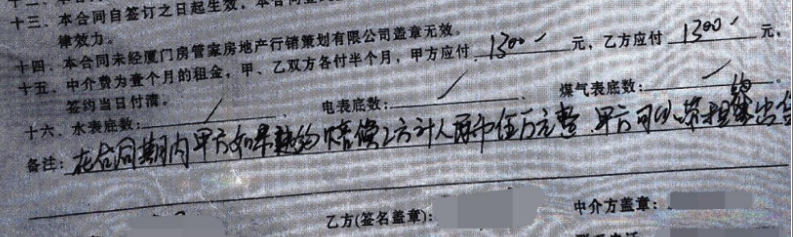 十三、本合同自签订之日起生效，本合同
律效力。
十四、本合同未经厦门房管家房地产行销策划有限公司盖章无效。
十五、中介费为壹个月的租金，甲、乙双方各付半个月，甲方应付 1300 元，乙方应付 1300 元，
签约当日付清。
十六、水表底数： 电表底数： 煤气表底数： 。
备注：在合同期内甲方如果 约赔偿乙方计人民币伍万元整，甲方可以带租约出售
乙方(签名盖章)： 中介方盖章：